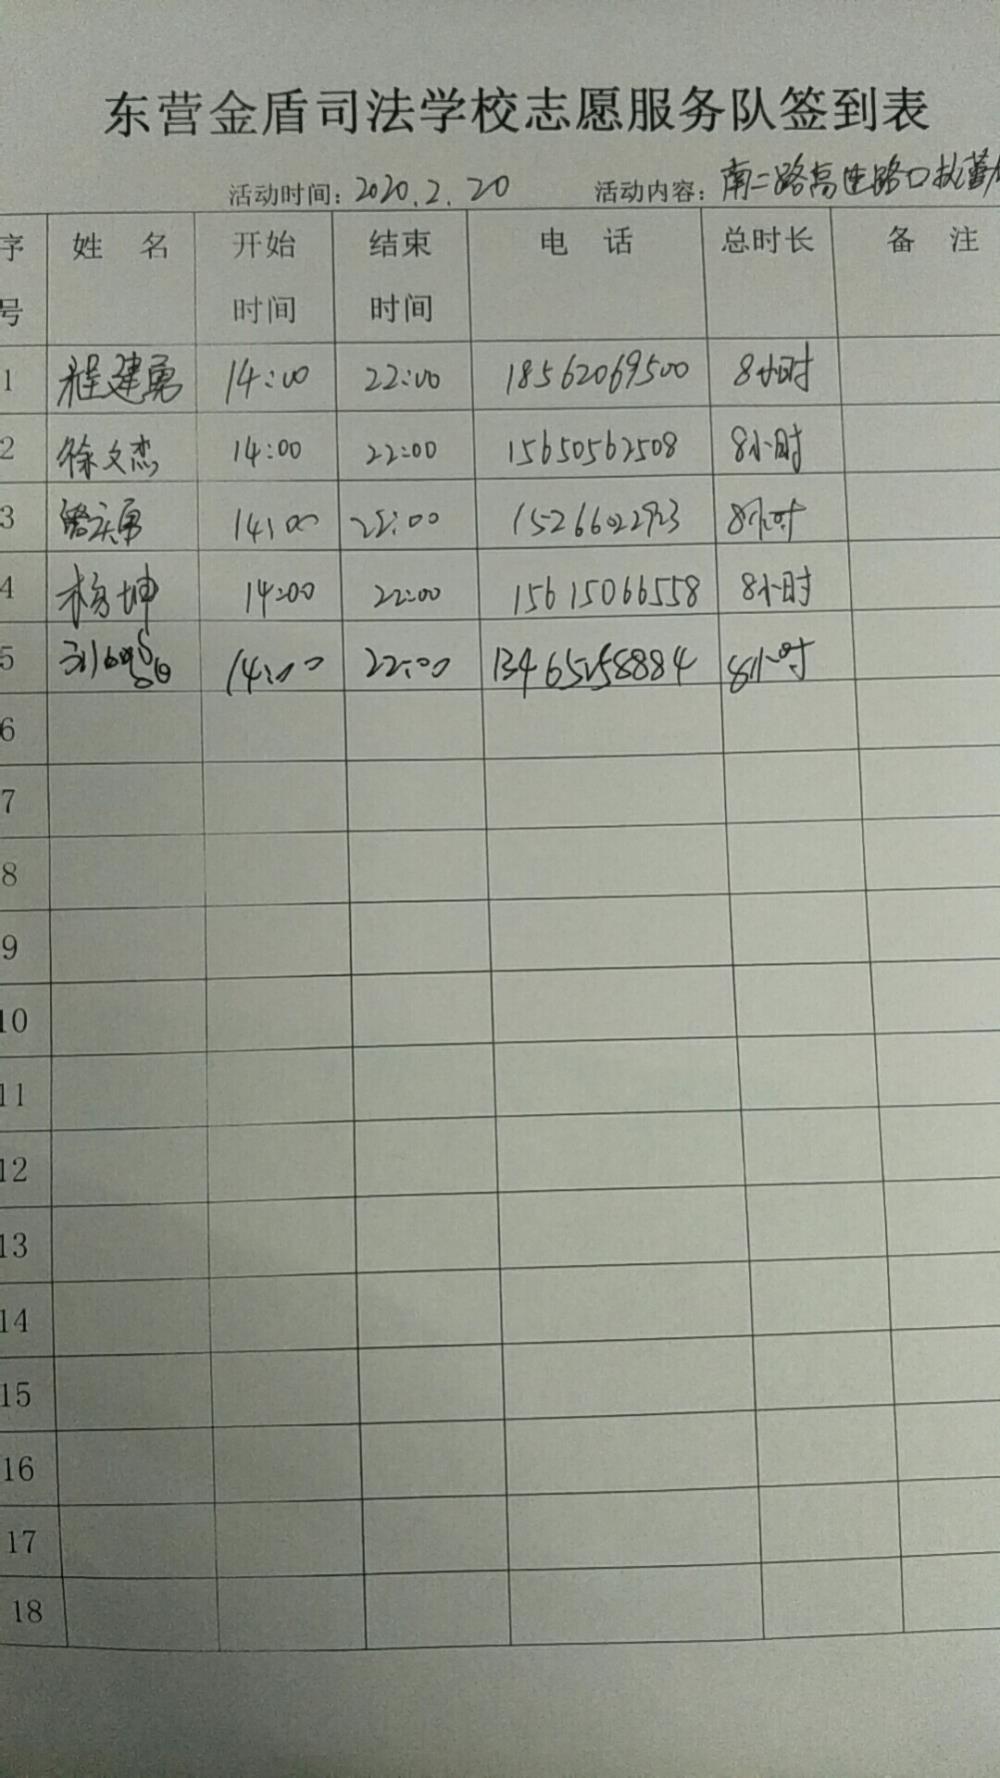 东营金盾司法学校志愿服务队签到表
活动时间：2020.2.20 活动内容：南二路高速路口执勤
序号 姓 名 开始时间 结束时间 电 话 总时长 备 注
1 程建勇 14:00 22:00 18562069500 8小时
2 徐文杰 14:00 22:00 15650562508 8小时
3 14:00 22:00 8小时
4 杨坤 14:00 22:00 15615066558 8小时
5 14:00 22:00 13465258884 8小时
6
7
8
9
10
11
12
13
14
15
16
17
18